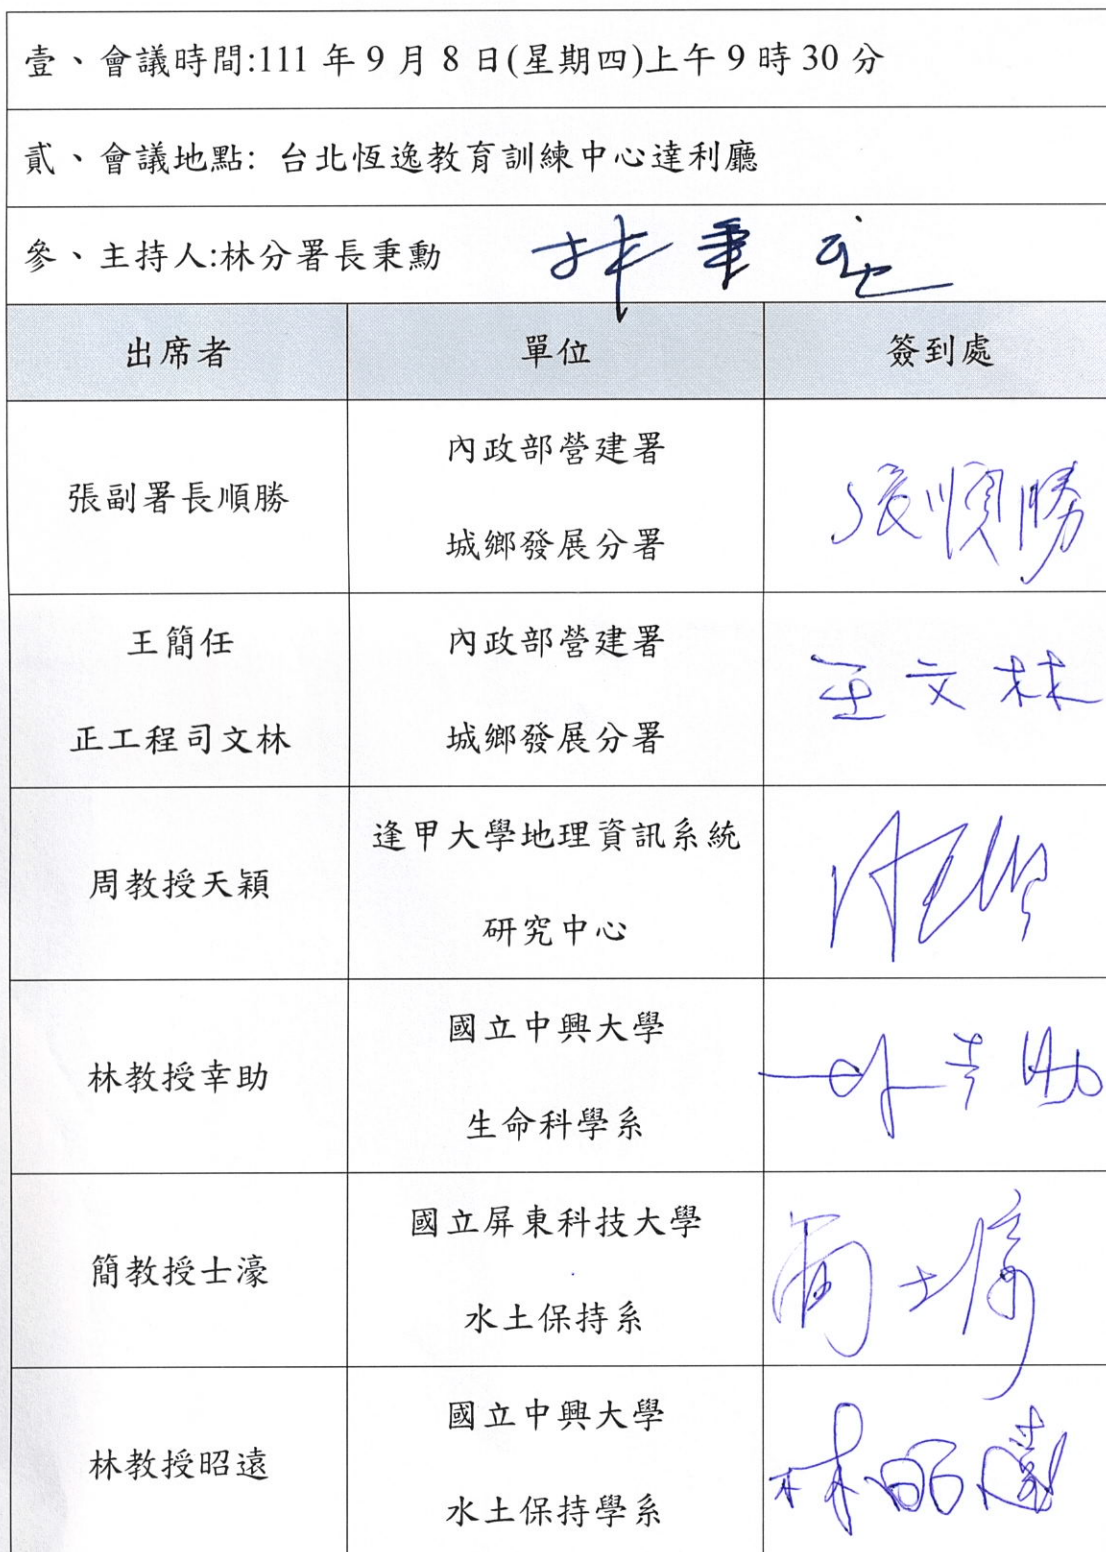 壹、會議時間:111年9月8日(星期四)上午9時30分
貳、會議地點: 台北恆逸教育訓練中心達利廳
參、主持人:林分署長秉勳 林秉勳
出席者 單位 簽到處
張副署長順勝 內政部營建署
城鄉發展分署 張順勝
王簡任
正工程司文林 內政部營建署
城鄉發展分署 王文林
周教授天穎 逢甲大學地理資訊系統
研究中心
林教授幸助 國立中興大學
生命科學系 林幸助
簡教授士濠 國立屏東科技大學
水土保持系 簡士濠
林教授昭遠 國立中興大學
水土保持學系 林昭遠